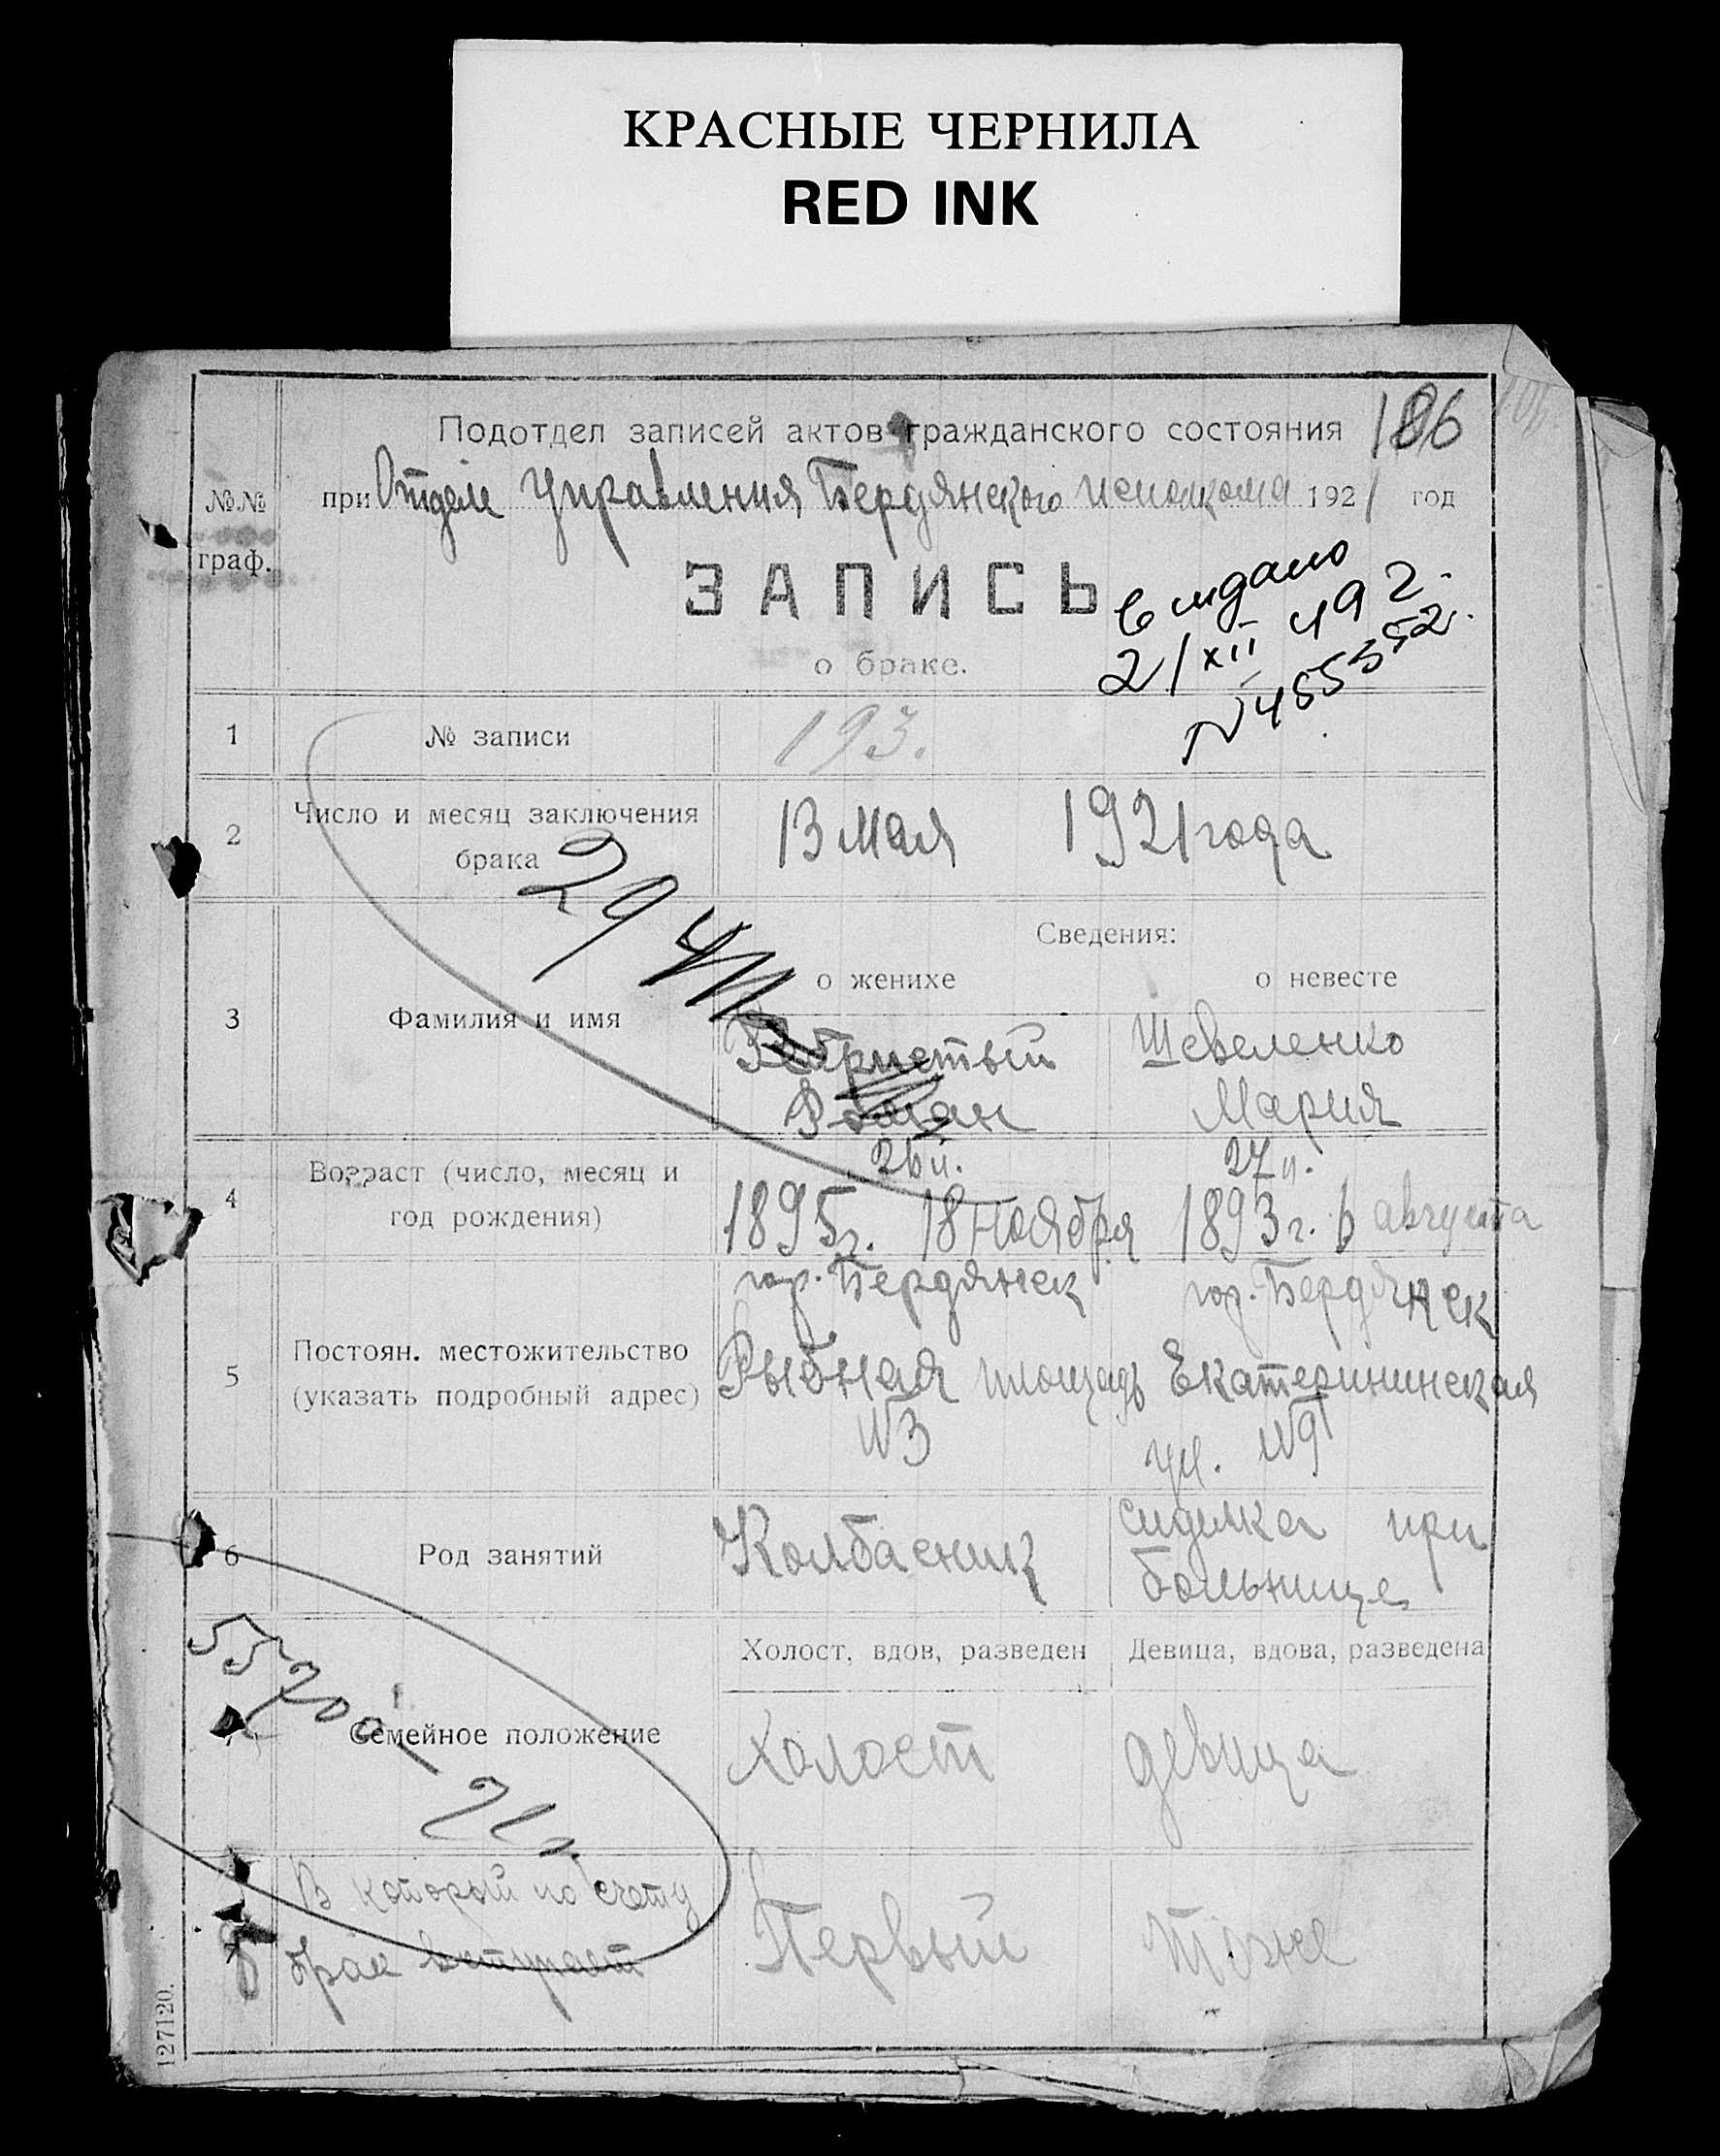 КРАСНЫЕ ЧЕРНИЛА
RED INK
186
Подотдел записей актов гражданского состояния
№№ граф.
при Отделе Управления Бердянского исполкома 1921 год
ЗАПИСЬ
о браке.
выдано
21/XII
1
№ записи
193.
2
Число и месяц заключения
брака
13 мая 1921 года
29
Сведения:
о женихе
о невесте
3
Фамилия и имя
Шевеленко
Роман
Мария
4
Возраст (число, месяц и
год рождения)
27 л.
1895 г. 18 Ноября
1893 г. 6 августа
5
Постоян. местожительство
(указать подробный адрес)
гор. Бердянск
гор. Бердянск
Рыбная площадь
Екатерининская
№3
ул. №9
6
Род занятий
Колбасник
сиделка при
больнице
Холост, вдов, разведен
Девица, вдова, разведена
Семейное положение
холост
девица
8
В который по счету
брак вступает
Первый
Тоже
127120.